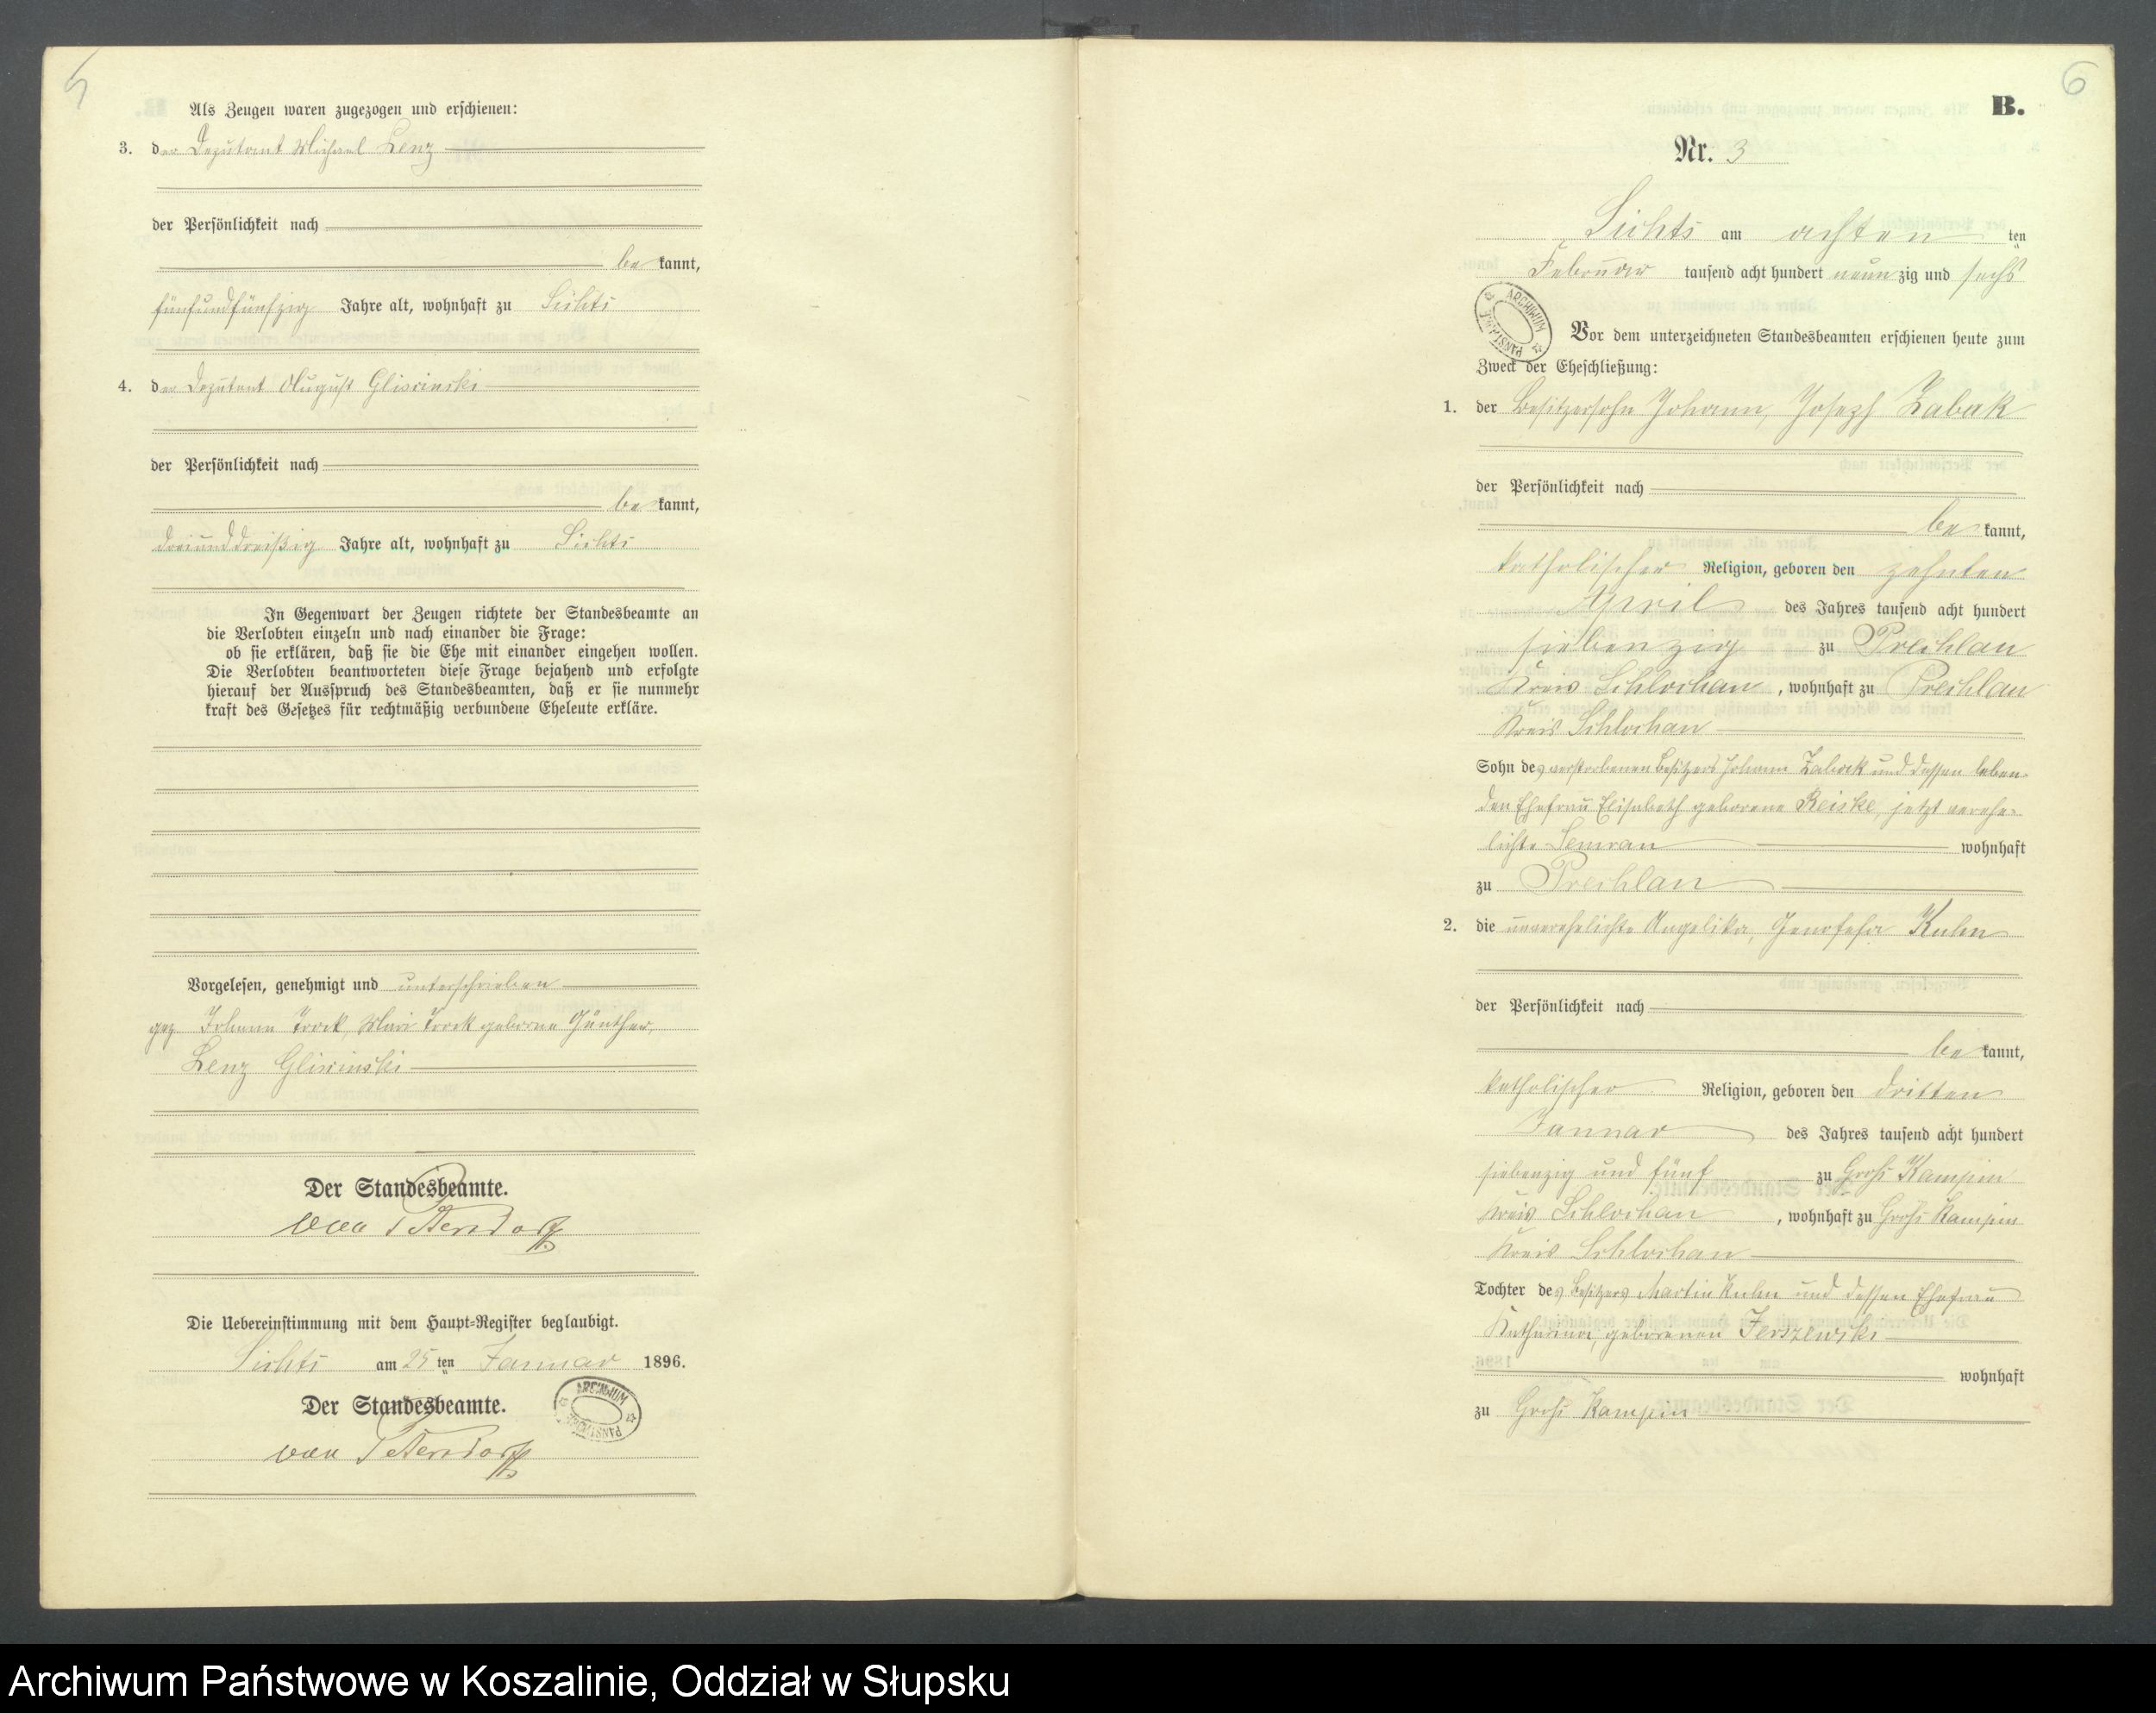 5
Als Zeugen waren zugezogen und erschienen:
3. der Deputant Michael Lenz
der Persönlichkeit nach
be kannt,
fünfundfünfzig Jahre alt, wohnhaft zu Lichts
4. der Deputant August Gliscinski
der Persönlichkeit nach
be kannt,
dreiunddreißig Jahre alt, wohnhaft zu Lichts
In Gegenwart der Zeugen richtete der Standesbeamte an
die Verlobten einzeln und nach einander die Frage:
ob sie erklären, daß sie die Ehe mit einander eingehen wollen.
Die Verlobten beantworteten diese Frage bejahend und erfolgte
hierauf der Ausspruch des Standesbeamten, daß er sie nunmehr
kraft des Gesetzes für rechtmäßig verbundene Eheleute erkläre.
Vorgelesen, genehmigt und unterschrieben
gez Johann geborne Günther,
Lenz Gliscinski
Der Standesbeamte.
von Petersdorff
Die Uebereinstimmung mit dem Haupt-Register beglaubigt.
Lichts am 25 ten Januar 1896.
Der Standesbeamte.
von Petersdorff
ARCHIWUM PAŃSTWOWE
6
B.
Nr. 3
Lichts am achten ten
Februar tausend acht hundert neun zig und sechs
ARCHIWUM PAŃSTWOWE
Vor dem unterzeichneten Standesbeamten erschienen heute zum
Zweck der Eheschließung:
1. der Besitzersohn Johann, Joseph Zabak
der Persönlichkeit nach
be kannt,
katholischer Religion, geboren den zehnten
April des Jahres tausend acht hundert
siebenzig zu Prechlau
Kreis Schlochau, wohnhaft zu Prechlau
Kreis Schlochau
Sohn des verstorbenen Besitzers Johann Zabak und dessen leben-
den Ehefrau Elisabeth geborene Reiske, jetzt verehe-
lichte Semrau wohnhaft
zu Prechlau
2. die unverehelichte Angelika, Genofefa Kuhn
der Persönlichkeit nach
be kannt,
katholischer Religion, geboren den dritten
Januar des Jahres tausend acht hundert
siebenzig und fünf zu Groß Kampin
Kreis Schlochau, wohnhaft zu Groß Kampin
Kreis Schlochau
Tochter des Besitzers Martin Kuhn und dessen Ehefrau
Katharina, geborenen Jerszewski
wohnhaft
zu Groß Kampin
Archiwum Państwowe w Koszalinie, Oddział w Słupsku